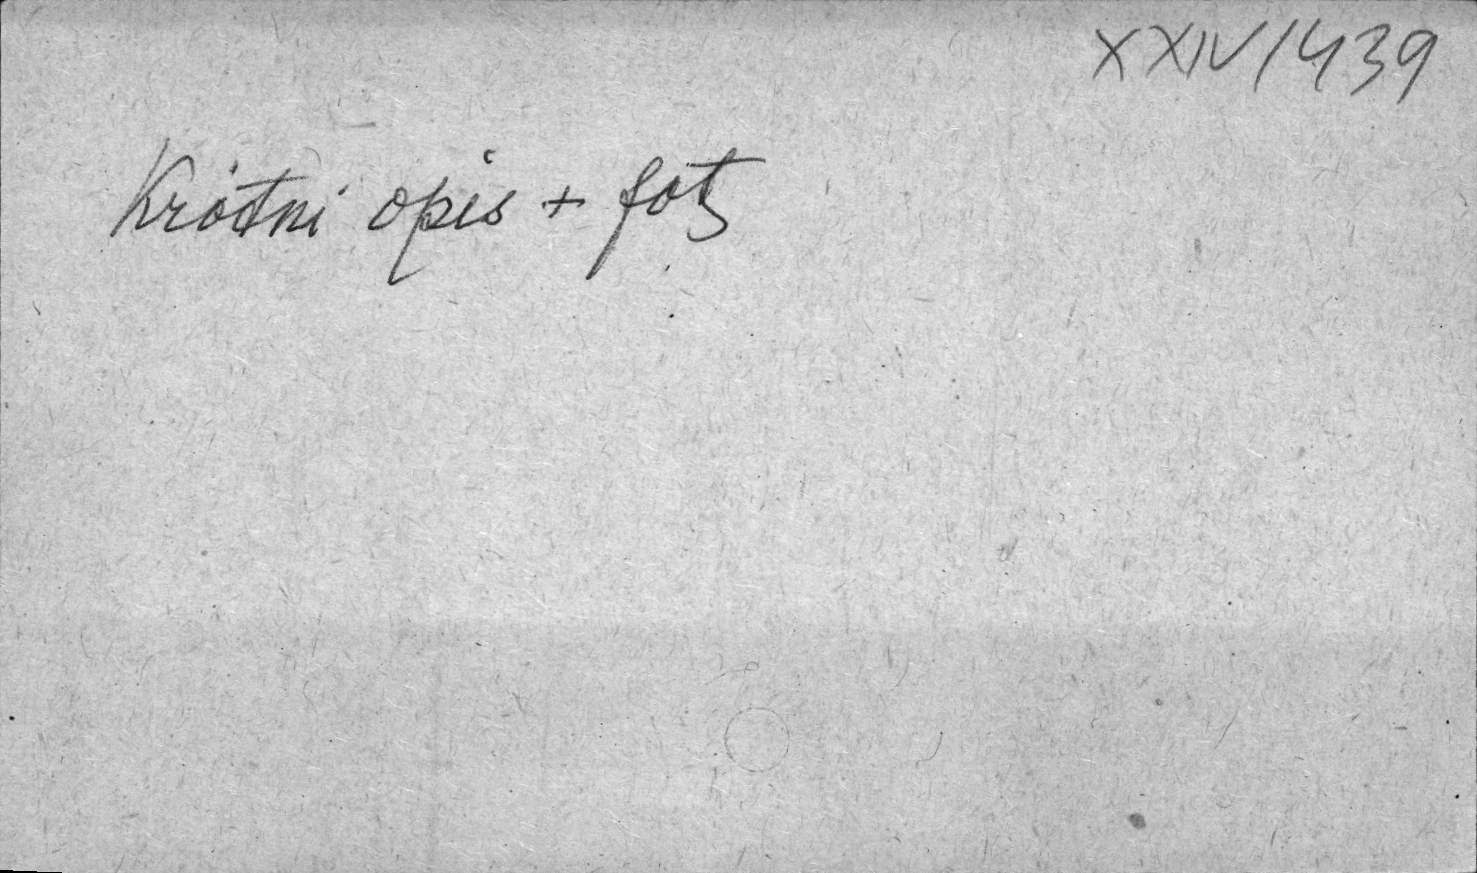 XXIV/439
Krótni opis + fot